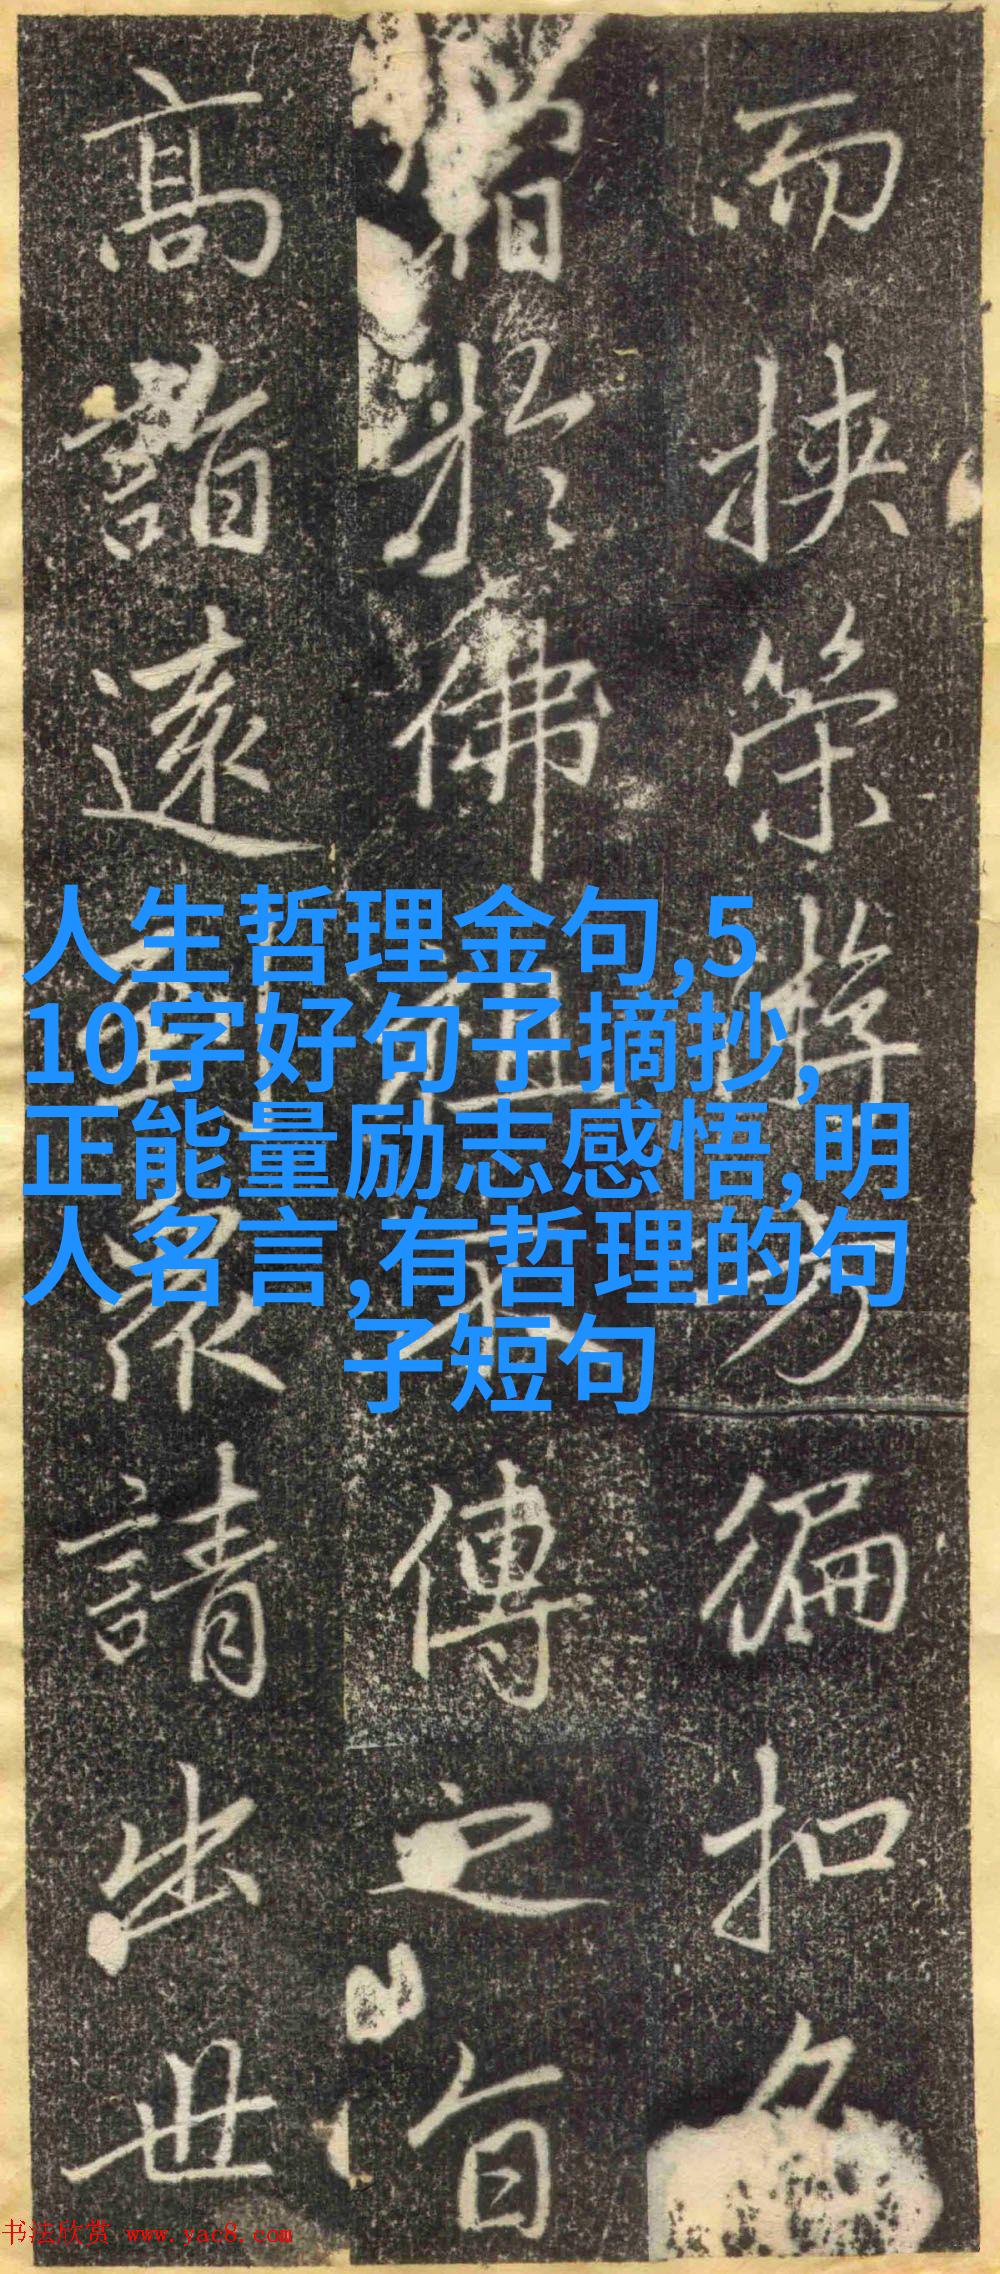 而挾策遊方徧扣
於佛祖不傳之旨
高遠至眾請出世
人生哲理金句,5
10字好句子摘抄,
正能量励志感悟,明
人名言,有哲理的句
子短句
书法欣赏 www.yac8.com